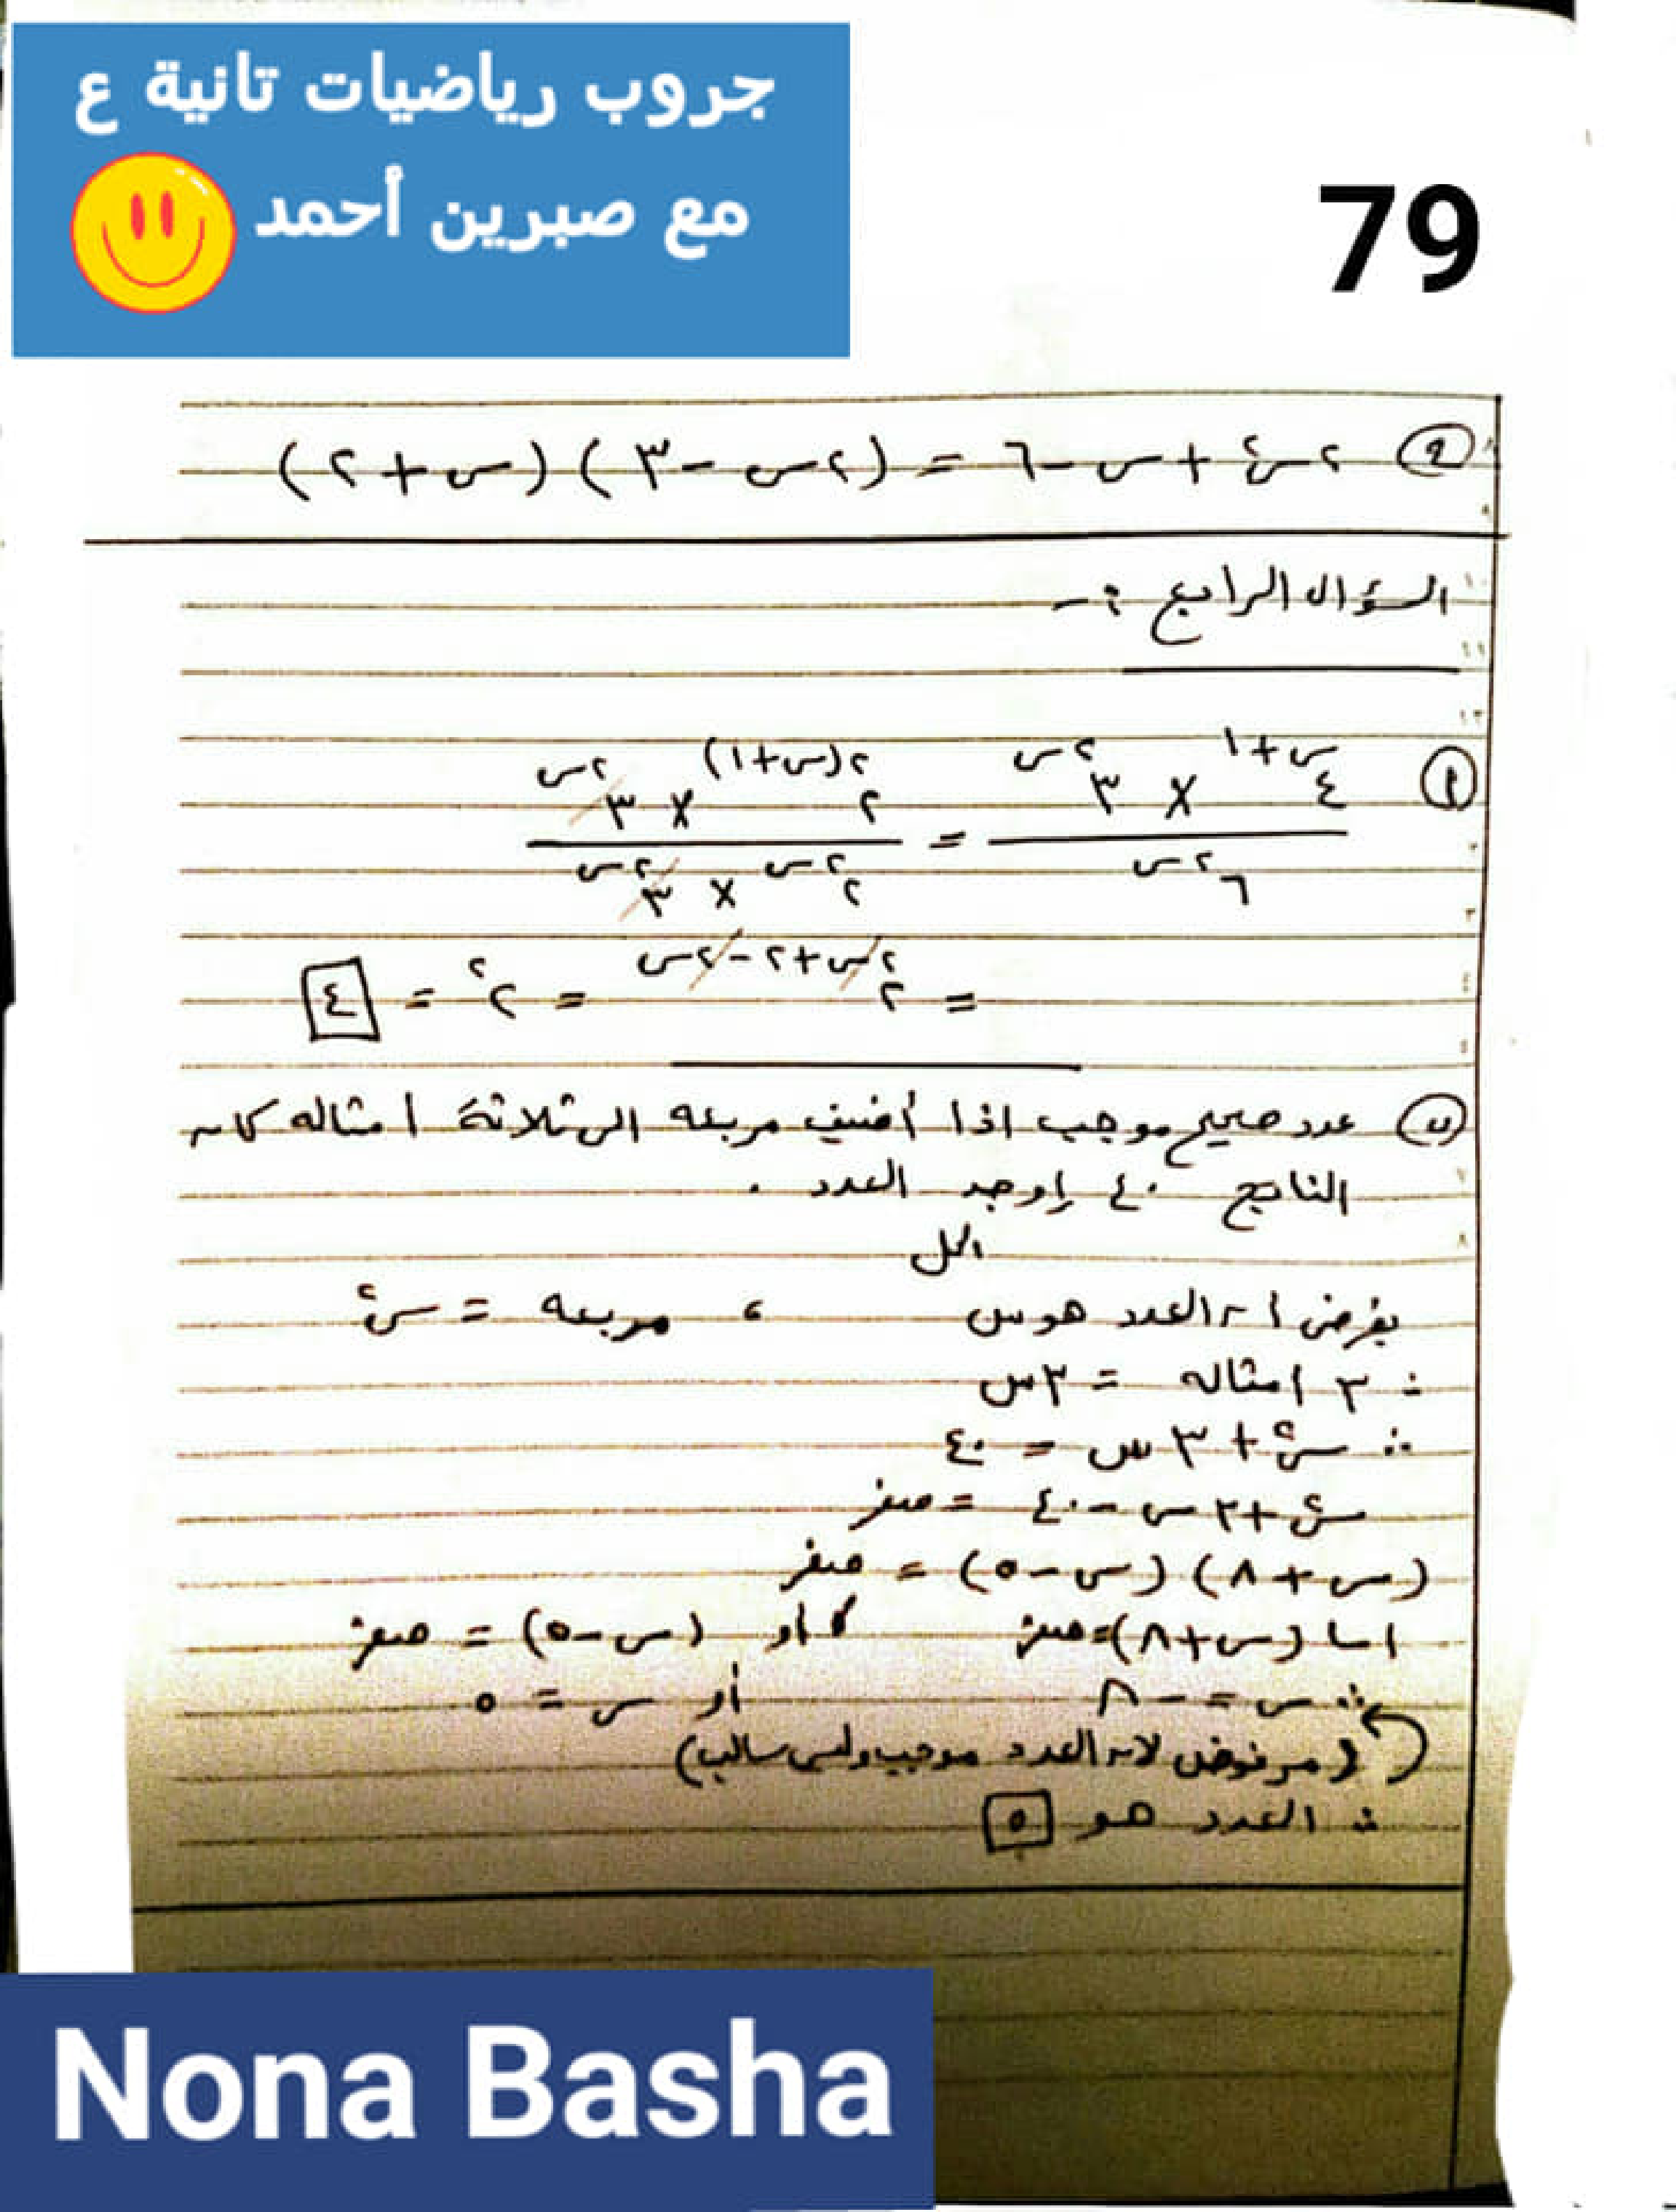 جروب رياضيات تانية ع
مع صبرين أحمد
79
٢س² + س - ٦ = (٢س - ٣) (س + ٢)
السؤال الرابع :-
أ) (٤^(س+١) × ٣^(٢س)) / ٦^(٢س) = (٢^(٢(س+١)) × ٣^(٢س)) / (٢^(٢س) × ٣^(٢س))
= ٢^(٢س+٢-٢س) = ٢² = ٤
ب) عدد صحيح موجب اذا أضيف مربعه الى ثلاثة امثاله كان
الناتج ٤٠ اوجد العدد .
الحل
بفرض ان العدد هو س ، مربعه = س²
∴ ٣ امثاله = ٣س
∴ س² + ٣س = ٤٠
س² + ٣س - ٤٠ = صفر
(س + ٨) (س - ٥) = صفر
اما (س + ٨) = صفر أو (س - ٥) = صفر
∴ س = - ٨ أو س = ٥
(مرفوض لان العدد موجب وليس سالب)
∴ العدد هو ٥
Nona Basha